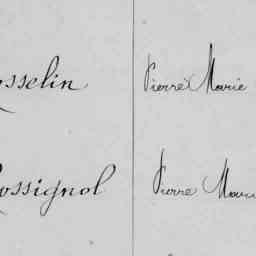 osselin Pierre Marie
Rossignol Pierre Mari